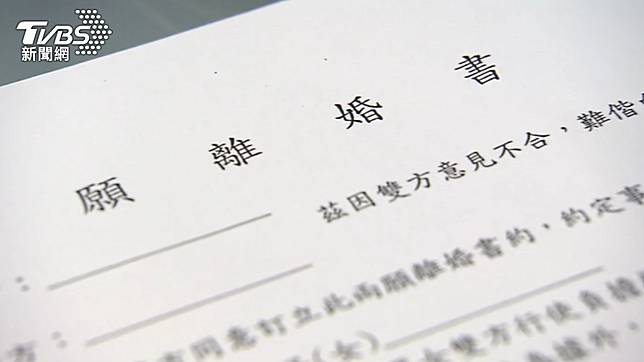 TVBS
新聞網
願離婚書
：
茲因雙方意見不合，難偕
方：
同意訂立此兩願離婚書約，約定事
(女)
女雙方行使負擔